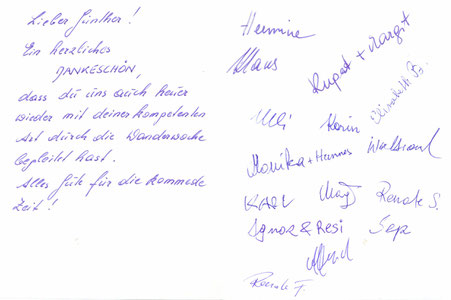 Lieber Günther!
Ein herzliches
DANKESCHÖN,
dass du uns auch heuer
wieder mit deiner kompetenten
Art durch die Wanderwoche
begleitet hast.
Alles Gute für die kommende
Zeit!
Hermine
Klaus
Rupert + Margit
Elisabeth
Uli Karin
Monika + Hannes Waltraud
KARL Renate S.
Ignaz & Resi Sepp
Renate F.